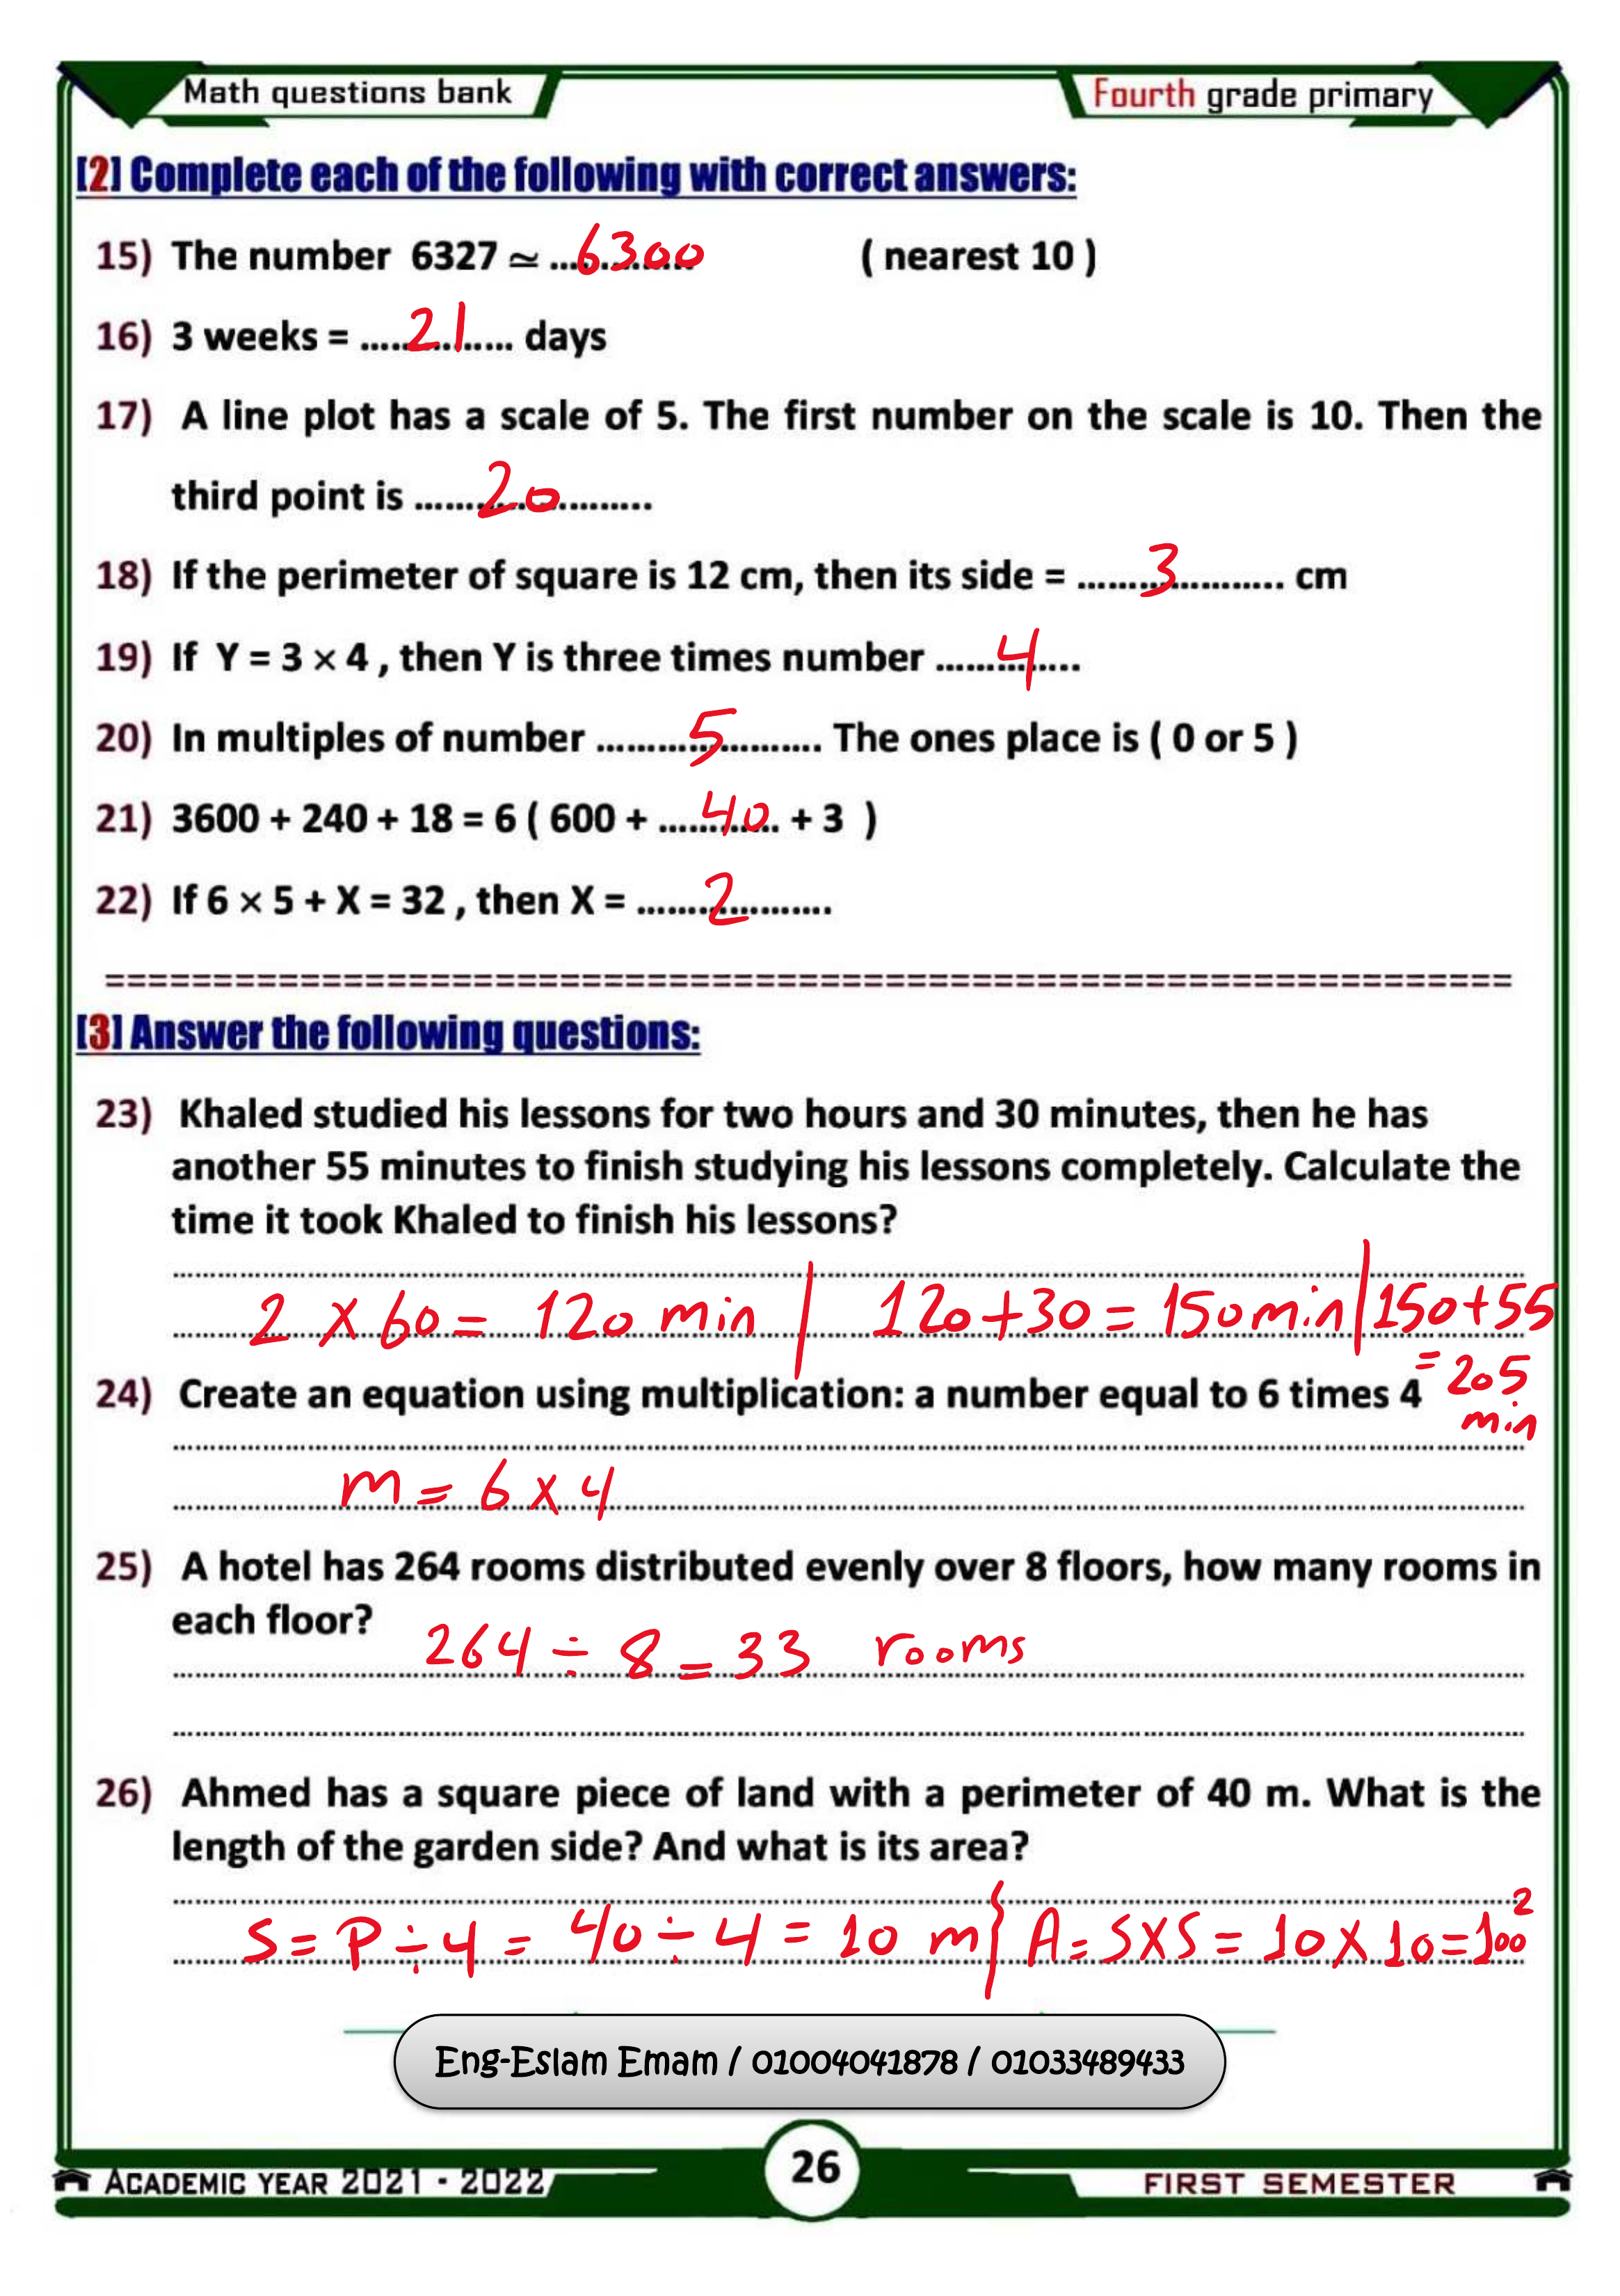 Math questions bank
Fourth grade primary
[2] Complete each of the following with correct answers:
15) The number 6327 ≃ ...6300... ( nearest 10 )
16) 3 weeks = ...21... days
17) A line plot has a scale of 5. The first number on the scale is 10. Then the
third point is ...20...
18) If the perimeter of square is 12 cm, then its side = ...3... cm
19) If Y = 3 × 4 , then Y is three times number ...4...
20) In multiples of number ...5... The ones place is ( 0 or 5 )
21) 3600 + 240 + 18 = 6 ( 600 + ...40... + 3 )
22) If 6 × 5 + X = 32 , then X = ...2...
[3] Answer the following questions:
23) Khaled studied his lessons for two hours and 30 minutes, then he has
another 55 minutes to finish studying his lessons completely. Calculate the
time it took Khaled to finish his lessons?
2 × 60 = 120 min | 120+30 = 150min | 150+55
= 205
min
24) Create an equation using multiplication: a number equal to 6 times 4
m = 6 × 4
25) A hotel has 264 rooms distributed evenly over 8 floors, how many rooms in
each floor?
264 ÷ 8 = 33 rooms
26) Ahmed has a square piece of land with a perimeter of 40 m. What is the
length of the garden side? And what is its area?
S = P ÷ 4 = 40 ÷ 4 = 10 m } A = S×S = 10 × 10 = 100²
Eng-Eslam Emam / 01004041878 / 01033489433
26
ACADEMIC YEAR 2021 - 2022
FIRST SEMESTER